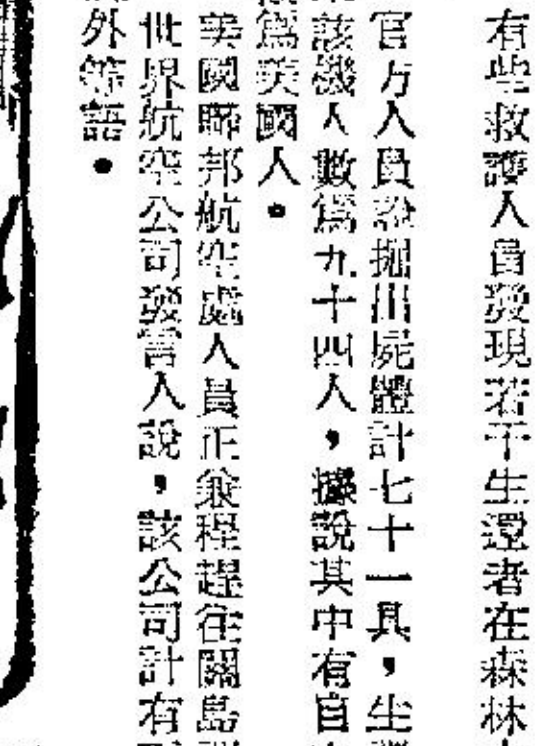 有些救護人員發現若干生還者在森林
官方人員說掘出屍體計七十一具，生
該機人數爲九十四人，據說其中有自
爲美國人。
美國聯邦航空處人員正兼程趕往關島
世界航空公司發言人說，該公司計有
外籍語。